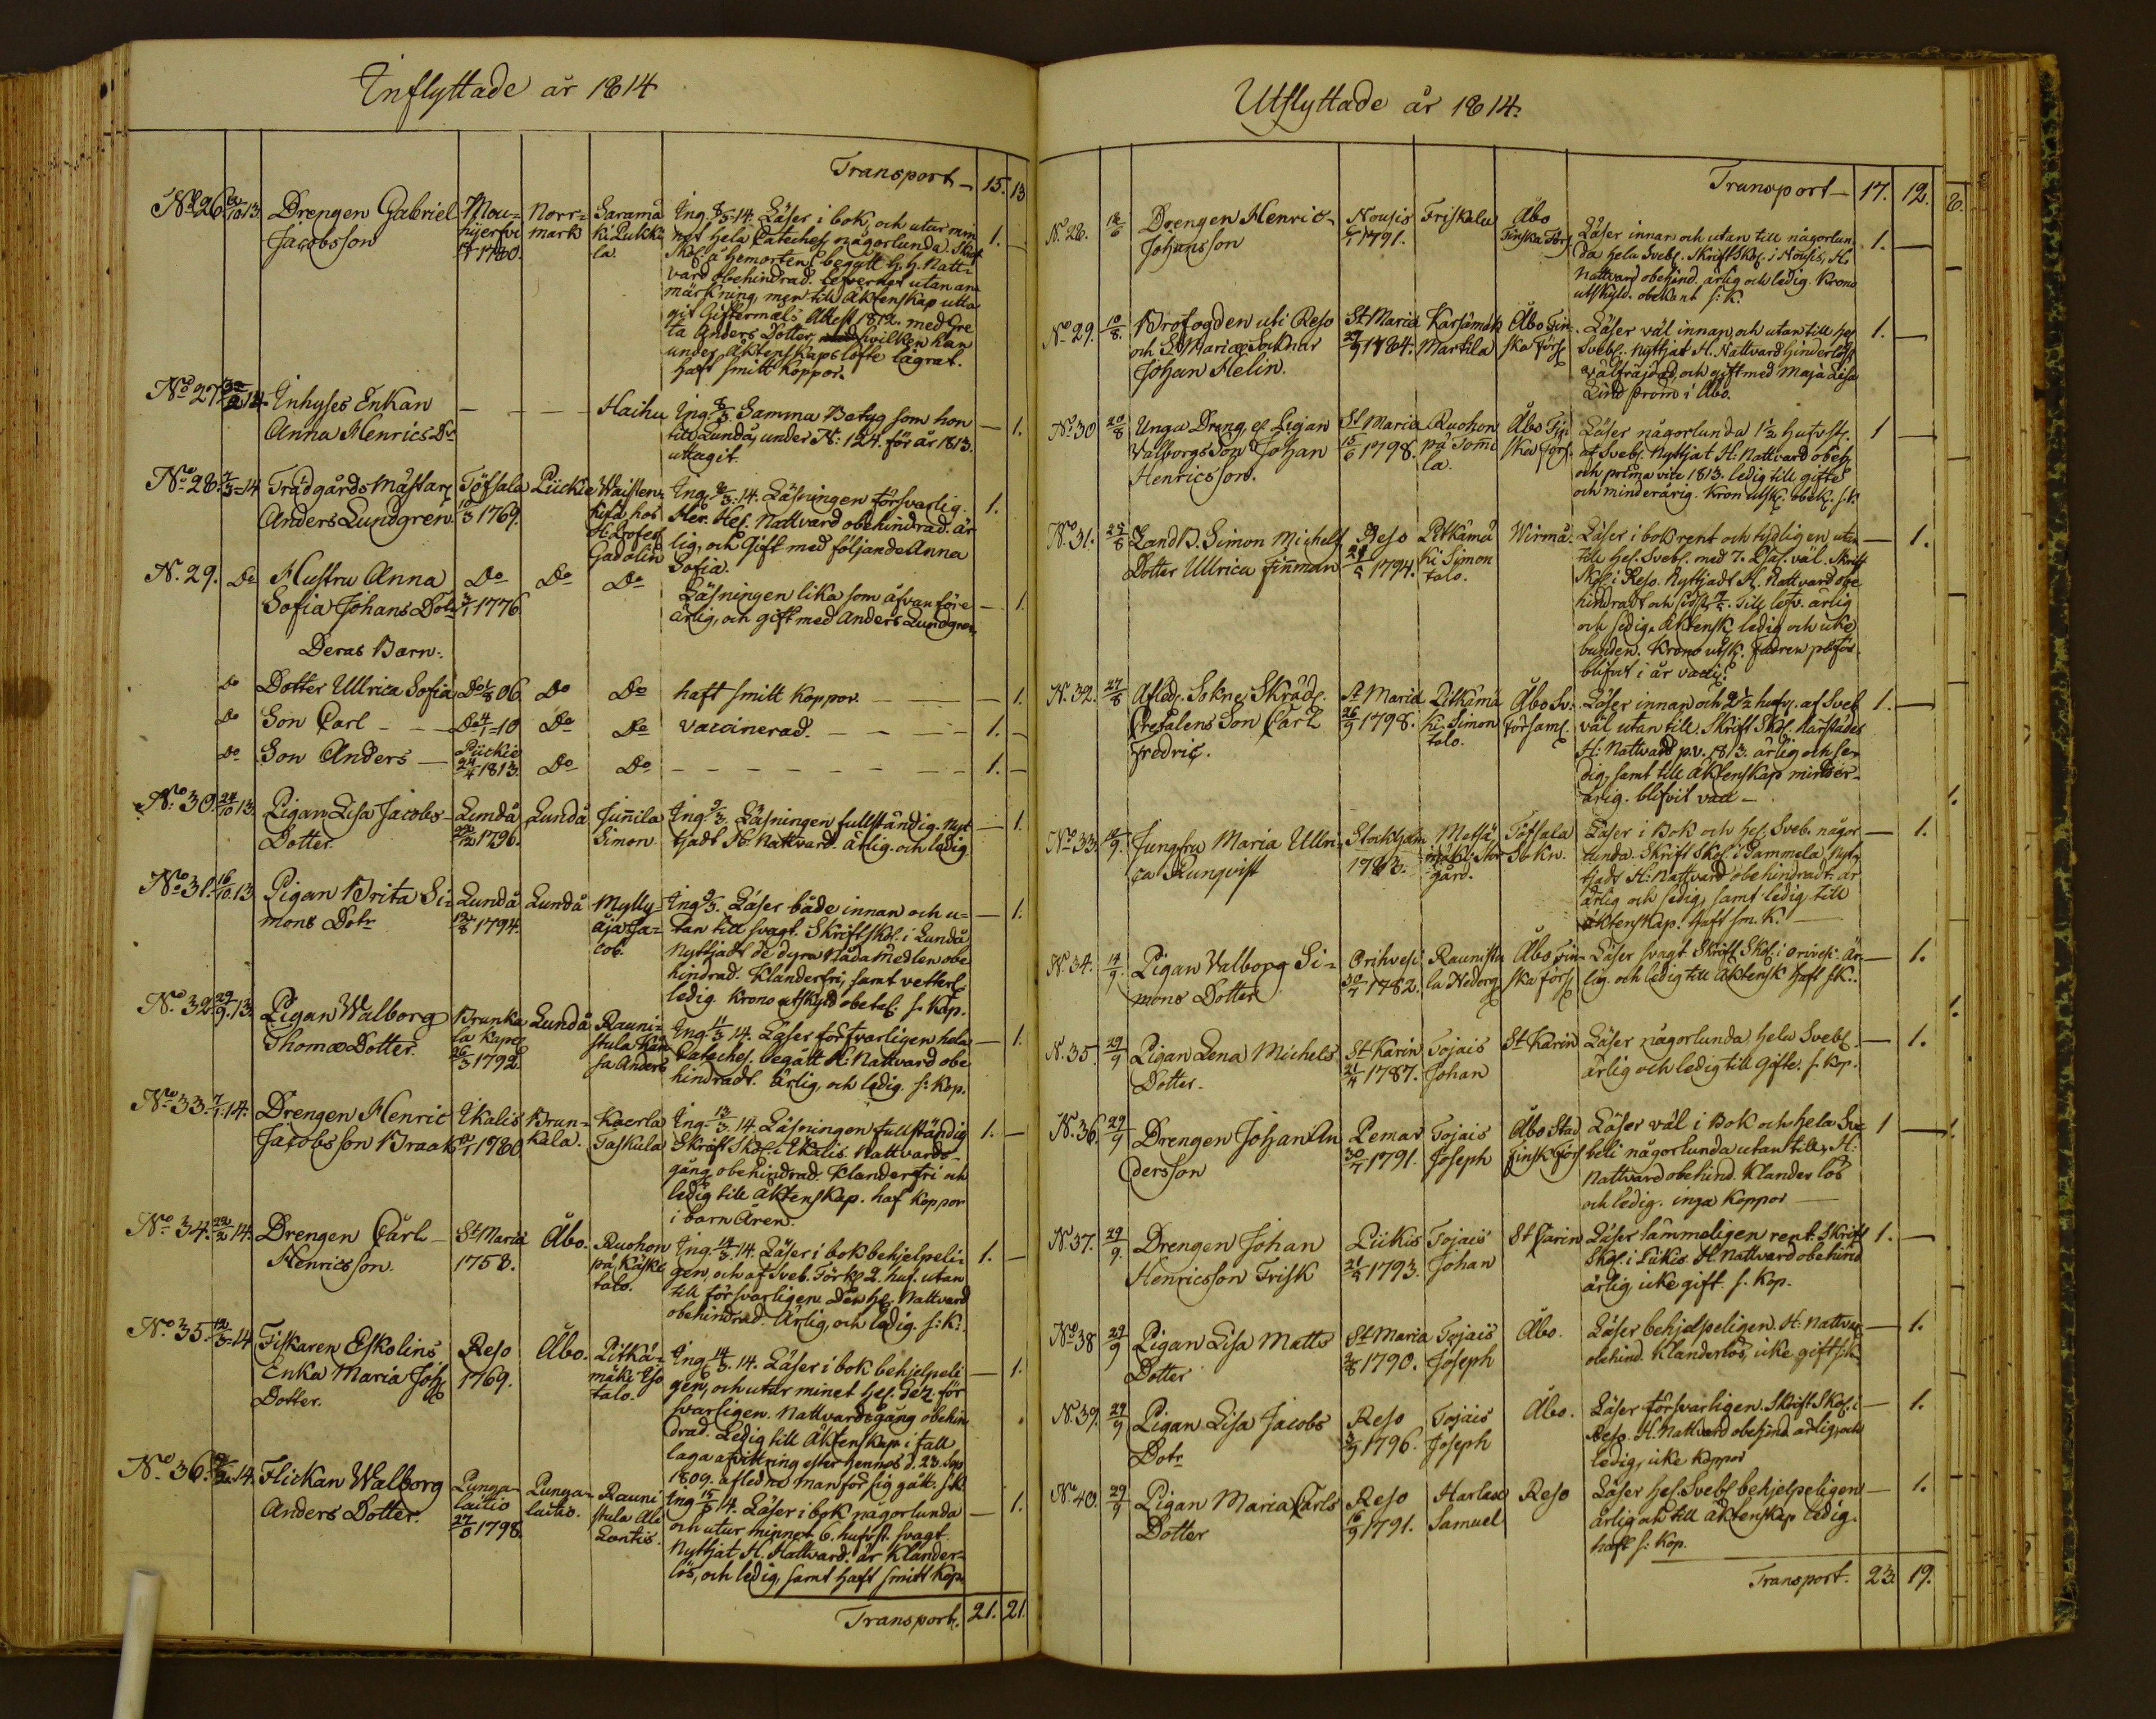 Inflyttade år 1814
Transport - 15. 13
No 26. 13. Drengen Gabriel Jacobsson
Norrmark
Ing. 8/3 14. Läser i bok, och utur min
net hela Cateches någorlunda. Skrift
Skol. å hemorten, begått H. H. Natt-
vard obehindrad. lefvernet utan an
märkning, men till Äktenskap utta
git Giftermåls Attest 1812. med Gre
ta Anders Dotter, hvilken han
under Äktenskaps löfte lägrat.
haft smitt koppor.
1. -
No 27. 14. Inhyses Enkan
Anna Henrics Dr
Haihu
Ing. 8/3 Samma Betyg som hon
till Lundå, under No: 124. för år 1813.
uttagit.
- 1.
No 28. 14 Trädgårds Mästar
Anders Lundgren
Töfsala
10/3 1769.
Piickie
hos
H. Profess
Gadolin
Ing. 8/3. 14. Läsningen försvarlig.
Her. Hel. Nattvard obehindrad. är
lig, och Gift med följande Anna
Sofia.
1.
N. 29. Do Hustru Anna
Sofia Johans Dotr
Do
1776
Do
Do
Läsningen lika som åfvanföre
ärlig, och gift med Anders Lundgren
- 1.
Deras Barn:
Do Dotter Ullrica Sofia Do 06 Do Do haft smitt koppor. - 1.
Do Son Carl - Do 10 Do Do vaccinerad. - 1. -
Do Son Anders - Piickie 24/4 1813. Do Do - 1. -
No 30. 24/10 13. Pigan Lisa Jacobs
Dotter.
Lundå
1796.
Lundå
Junnila
Simon
Ing. 9/3. Läsningen fullständig. Nyt
tjadt H. Nattvard. ärlig och ledig
- 1.
No 31. 16/10 13 Pigan Brita Si-
mons Dotr
Lundå
1794.
Lundå
Mylly-
äja Ja-
cob.
Ing. 9/3. Läser både innan och u-
tan till svagt. Skriftskol. i Lundå
Nyttjadt de dyra Nådamedlen obe
hindrad. Klanderfri, samt vetterl.
ledig. Krono utskyld obetal. s. Kop.
- 1.
No 32. 29/9 13. Pigan Walborg
Thomæ Dotter.
Brunka
la Kapel
26/3 1792.
Lundå
Rauni-
stula
Anders
Ing. 11/3. 14. Läser försvarligen hela
Cateches. begått H: Nattvard obe
hindradt. ärlig, och ledig. s: kop.
- 1.
No 33. 14. Drengen Henric
Jacobsson Braak
Ikalis
1780
Brun-
kala.
Kaerla
Taskula
Ing. 13/3. 14. Läsningen fullständig
Skrift Skol. i Ikalis. Nattvards-
gång obehindrad. Klanderfri och
ledig till äktenskap. haf koppor
i barn Åren.
1. -
No 34. 14. Drengen Carl
Henricsson.
St Maria
1758.
Åbo.
Ruohon
pä Käske
talo.
Ing. 14/3. 14. Läser i bok behjelpeli-
gen, och af Sveb. Förk. 2. huf. utan
till försvarligen. Den H. Nattvard
obehindrad. Ärlig, och ledig. s: k:
1. -
No 35. 14 Fiskaren Eskolins
Enka Maria Joh
Dotter.
Reso
1769.
Åbo.
Pitkä-
mäki
talo.
Ing. 14/3. 14. Läser i bok behjelpeli
gen, och utur minet Hel. för
svarligen. Nattvardsgång obehin
drad. Ledig till Äktenskap i fall
laga afvittring efter hennes d. 23. Sep
1809. afledne man för sig gått. s: k.
- 1.
No 36. 14. Flickan Walborg
Anders Dotter.
Punga-
laitio
27/8 1798.
Punga-
laitio.
Rauni
stula Ale
Lantis.
Ing 15/3 14. Läser i bok någorlunda
och utur minnet 6. hufvst. svagt.
Nyttjat H. Nattvard. är Klander-
lös, och ledig, samt haft smitt kop
- 1.
Transport. 21. 21.
Utflyttade år 1814.
Transport - 17. 12.
N. 28. Drengen Henric
Johansson
Nousis
1791.
Friskala
Åbo
Finska För.
Läser innan och utan till någorlun
da hela Sveb. Skrift Skol. i Nousis, H.
Nattvard obehind. ärlig och ledig. Krono
utskyld. obekant s: k.
1. -
No 29. 10/8. Brofogden uti Reso
och St Mariæ Soknar
Johan Helin.
St Maria
29/9 1784.
Karsämäk
Martila
Åbo Fin-
ska Förs.
Läser väl innan och utan till hel
Sveb. Nyttjat H. Nattvard hinderlöst
välfräjdad, och gift med Maja Lisa
Lindström i Åbo.
1. -
No 30 20/8 Unga Dreng, el Pigan
Valborgs Son Johan
Henricsson.
St Maria
15/6 1798.
Ruohon
pä Tomi
la.
Åbo Fin
ska förs.
Läser någorlunda 1½ hufvst.
af Sveb. Nyttjat H: Nattvard obeh.
och prima vice 1813. ledig till gifte
och minderårig. Kron utsk. obek. s: k
1 -
N. 31. 24/8 Landb. Simon Michels
Dotter Ullrica Finman
Reso
1794.
Pitkämä
ki Simon
talo.
Wirmå.
Läser i bok rent och tydligen, utan
till hel. Sveb. med 7. Psal. väl. Skrift
Skol. i Reso. Nyttjadt H. Nattvard obe
hindradt och sidst. Till lefv. ärlig
och sedig. Äktensk. ledig och icke
bunden. Krono utsk. fadren påför
blifvit i år
- 1.
N. 32. 27/8 Afled. Sokne Skräd.
Presalens Son Carl
Fredric.
St Maria
26/9 1798.
Pitkämä
ki Simon
talo.
Åbo Sv.
Församl.
Läser innan och 2½ hufv. af Sveb
väl utan till. Skrift Skol. härstädes
H: Nattvard p. v. 1813. ärlig och se-
dig, samt till äktenskap minder-
årig. blifvit vacc -
1. -
No 33. Jungfru Maria Ullri-
ca Runqvist
Stockholm
1783.
Metsä
mäki Stor
gård.
Töfsala
Sokn.
Läser i Bok och hel Sveb. någor
lunda. Skrift Skol. i Gammela Nyt-
tjadt H: Nattvard obehindradt. är
ärlig och sedig, samt ledig till
äktenskap. haft sm. K.
- 1.
N. 34. 14/9. Pigan Valborg Si-
mons Dotter
Orihvesi
1782.
Raunistu
la Nedarg
Åbo Fin-
ska förs.
Läser svagt Skrift Skol i Orivesi. Är-
lig. och ledig till äktensk haft s: K.:
- 1.
N. 35. 29/9 Pigan Lena Michels
Dotter.
St Karin
21/4 1787.
Tojais
Johan
St Karin
Läser någorlunda, hela Sveb.
ärlig och ledig till Gifte. s. kop.
- 1.
N. 36. 29/9 Drengen Johan An
dersson
Pemar
1791.
Tojais
Joseph
Åbo Stad
Finsk förs
Läser väl i Bok och hela Sve
beli någorlunda utan till, H:
Nattvard obehind. klander lös
och ledig. inga koppor -
1 -
N. 37. 29/9. Drengen Johan
Henricsson Frisk
Piikis
1793.
Tojais
Johan
St Carin
Läser sammeligen rent. Skrift
Skol. i Piikis. H. Nattvard obehind
ärlig, icke gift. s. kop.
1. -
No 38 29/9 Pigan Lisa Matts
Dotter
St Maria
1790.
Tojais
Joseph
Åbo.
Läser behjelpeligen. H. Nattvar
obehind. klanderlös, icke gift s: k
- 1.
N. 39. 29/9 Pigan Lisa Jacobs
Dotr
Reso
1796.
Tojais
Joseph
Åbo.
Läser försvarligen. Skrift Skol. i
Reso. H. Nattvard obehind. ärlig, och
ledig, icke koppor
- 1.
No 40. 29/9 Pigan Maria Carls
Dotter
Reso
1791.
Harlax
Samuel
Reso
Läser hel. Sveb. behjelpeligen
ärlig och till äktenskap ledig.
haft s: kop.
- 1.
Transport. 23. 19.